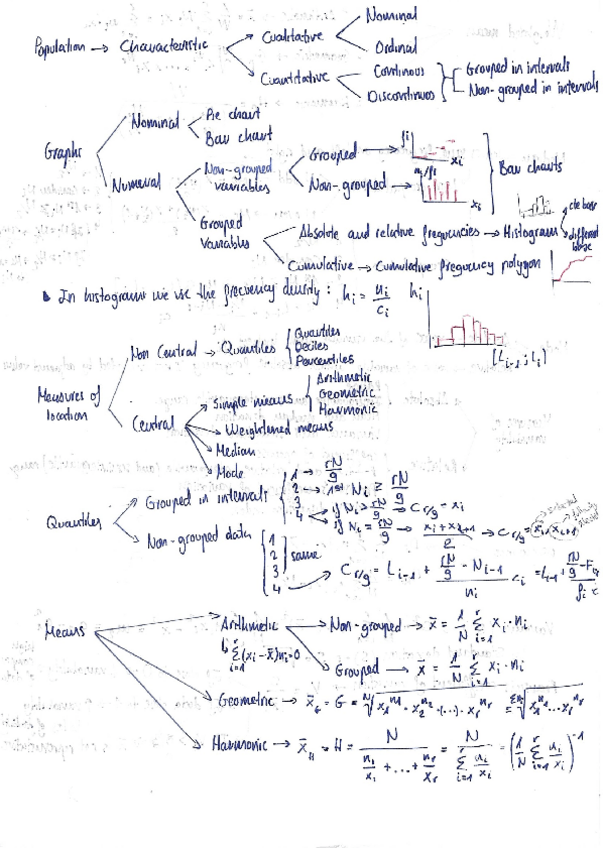 Population → Characteristic
Qualitative
Nominal
Ordinal
Quantitative
Continous
Discontinous
Grouped in intervals
Non-grouped in intervals
Graphs
Nominal
Pie chart
Bar chart
Numeral
Non-grouped variables
Grouped → fi xi
Non-grouped → ni/fi xi
Bar charts
Grouped variables
Absolute and relative frequencies → Histogram
cte base
different base
Cumulative → Cumulative frequency polygon
In histograms we use the frequency density: hi = ni/ci
hi
[Li-1; Li)
Measures of location
Non Central → Quantiles
Quartiles
Deciles
Percentiles
Central
Simple means
Arithmetic
Geometric
Harmonic
Weightened means
Median
Mode
Quantiles
Grouped in intervals
1 → rN/g
2 → 1st Ni ≥ rN/g
3 if Ni > rN/g → Cr/g = xi
4 if Ni = rN/g → (xi + xi+1)/2 → Cr/g = xi, xi+1
Non-grouped data
1
2
3
same
4 → Cr/g = Li-1 + (rN/g - Ni-1)/ni ci = Li-1 +
Means
Arithmetic
Σ(xi - x̄)ni = 0
Non-grouped → x̄ = 1/N Σ xi · ni
Grouped → x̄ = 1/N Σ xi · ni
Geometric → x̄G = G = N√(x1^n1 · x2^n2 · (...) · xr^nr) = Σni√(x1^n1 ... xr^nr)
Harmonic → x̄H = H = N/(n1/x1 + ... + nr/xr) = N/(Σ ni/xi) = (1/N Σ ni/xi)^-1